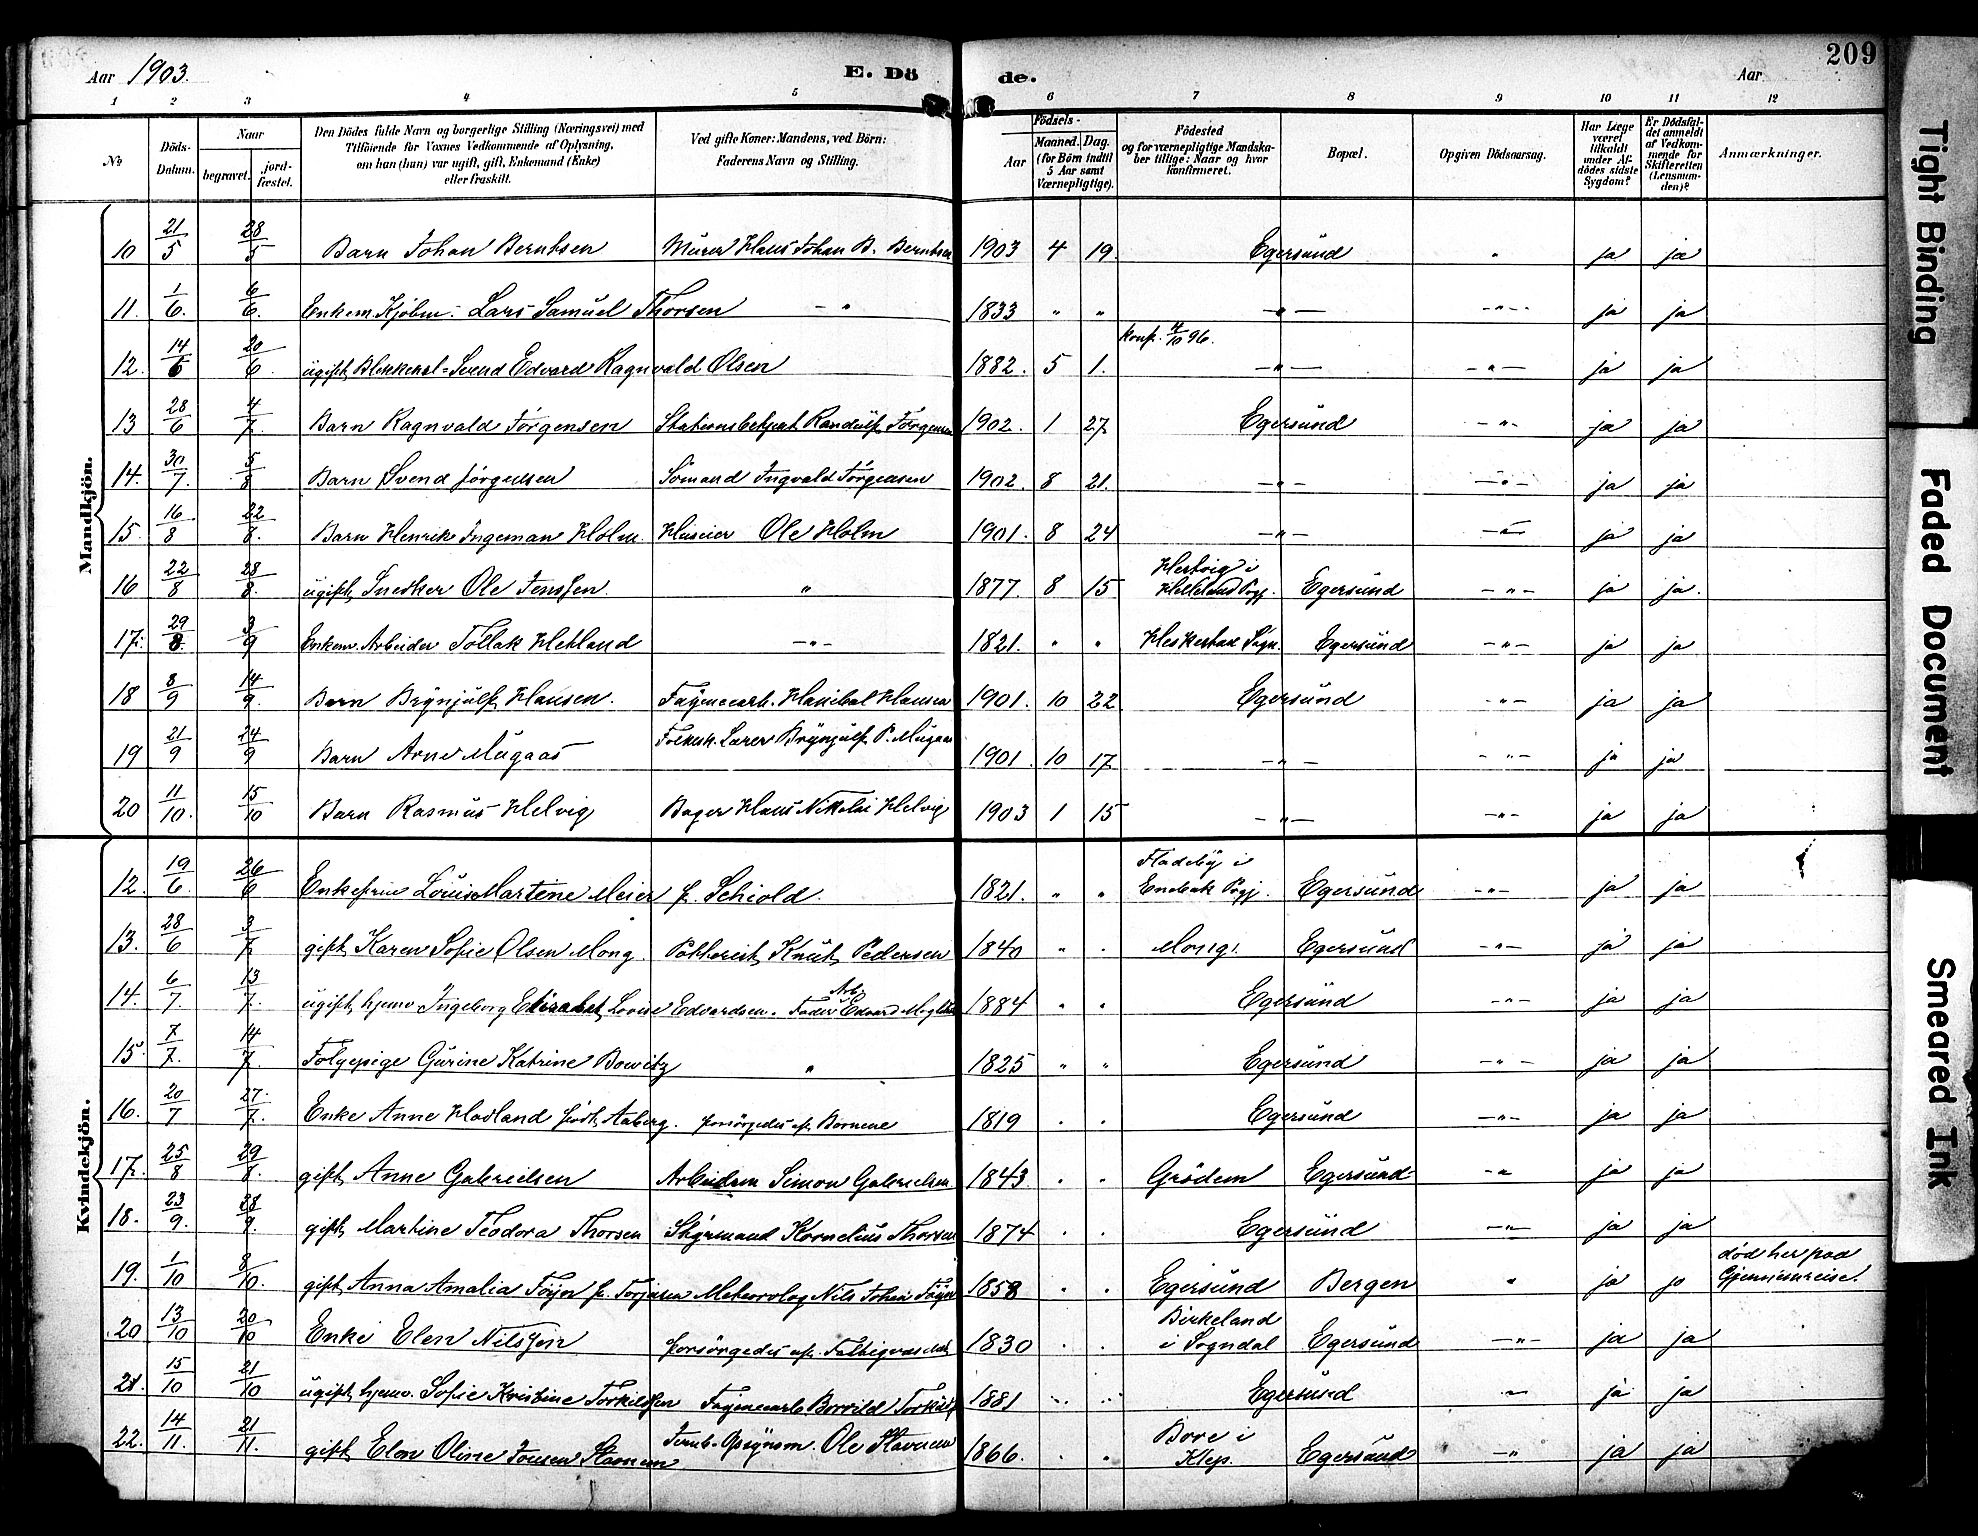 Aar 1903. E. Dö de. Aar 209
1 2 3 4 5 6 7 8 9 10 11 12
No
Döds-
Datum.
Naar
begravet.
jord-
fæstet.
Den Dödes fulde Navn og borgerlige Stilling (Næringsvei) med
Tilföiende for Voxnes Vedkommende af Oplysning,
om han (hun) var ugift, gift, Enkemand (Enke)
eller fraskilt.
Ved gifte Koner: Mandens, ved Börn:
Faderens Navn og Stilling.
Födsels-
Aar
Maaned. Dag.
(for Börn indtil
5 Aar samt
Værnepligtige).
Födested
og for værnepligtige Mandska-
ber tillige: Naar og hvor
konfirmeret.
Bopæl.
Opgiven Dödsaarsag.
Har Læge
været
tilkaldt
under Af-
dödes sidste
Sygdom?
Er Dödsfal-
det anmeldt
af Vedkom-
mende for
Skifteretten
(Lensman-
den)?
Anmærkninger.
Mandkjön.
10 21/5 28/5 Barn Johan Berntsen Murer Hans Johan B. Berntsen 1903 4 19 Egersund " ja ja
11. 1/6. 6/6. Enkem. Kjøbm. Lars Samuel Thorsen – " 1833 " " – " – – " – ja ja
konf. 4/10 96.
12. 14/6 20/6. ugift Blikkensl. Svend Edvard Ragnvald Olsen 1882. 5 1. – " – – " – ja ja
13 28/6 4/7. Barn Ragnvald Jørgensen Stationsbetjent Randulf Jørgensen 1902. 1 27 Egersund – " – ja ja
14. 30/7. 5/8 Barn Svend Jørgensen Sømand Ingvald Jørgensen 1902. 8 21. – " – – " – ja ja
15. 16/8 22/8. Barn Henrik Ingeman Holm Huseier Ole Holm 1901. 8 24 – " – – " – ja ja
16 22/8 28/8. ugift Snedker Ole Jenssen " 1877. 8 15 Hestvig i
Helleland Pgj. Egersund – " – ja ja.
17. 29/8. 3/9 Enkem. Arbeider Tollak Hetland – " – 1821. " " Heskestad Sogn. Egersund – " – ja ja
18 8/9 14/9. Barn Brynjulf Hansen. Fayencearb. Hanibal Hansen 1901. 10 22 Egersund – " – ja ja
19 21/9 24/9 Barn Arne Mugaas Folkesk. Lærer Brynjulf P. Mugaas 1901 10 17 – " – – " – ja ja
20 11/10. 15/10 Barn Rasmus Helvig Bager Hans Nikolai Helvig 1903 1 15 – " – – " – ja ja
Kvindekjön.
12. 19/6. 26/6 Enkefrue Louise Martine Meier f. Schiold. 1821. " " Fladeby i
Enebak Pgj. Egersund – " – ja ja
13. 28/6 3/7 gift Karen Sofie Olsen Mong. Pokkerist Knut Pedersen 1840 " " Mong. Egersund – " – ja ja
14. 6/7. 13/7. ugift hjemv. Ingeborg Elisabet Lovise Edvardsen. Fader Arb. Edvard 1884 " " Egersund – " – ja ja
15. 7/7. 14/7. Folgepige Gurine Katrine Bowitz " 1825 " " Egersund – " – ja ja
16. 20/7 27./7. Enke Anne Hovland født Aaberg. forsørgedes af Børnene 1819 " " Egersund – " – ja ja
17. 25/8 29/8. gift Anne Gabrielsen Arbeideren Simon Gabrielsen 1843. " " Grødem Egersund – " ja ja
18. 23/9. 28/9. gift Martine Teodora Thorsen Styrmand Kornelius Thorsen 1874 " " Egersund – " – ja ja
19. 1/10 8/10. gift Anna Amalia Føyn f. Torjusen Meteorolog Nils Johan Føyn 1858 " " Egersund Bergen " ja ja død her paa
Gjennemreise.
20 13/10 20/10 Enke Elen Nilssen forsørgedes af Fattigvæsenet 1830 " " Birkeland
i Sogndal Egersund – " – ja ja
21. 15/10 21/10 ugift hjemv. Sofie Kristine Torkildsen Fayencearb. Borvild 1881 " " Egersund " ja ja
22. 14/11. 21/11. gift Elen Oline Jonsen Stavnem Ole Stavnem 1866. " " Bore i
Klep. Egersund – " ja ja
Tight Binding
Faded Document
Smeared Ink